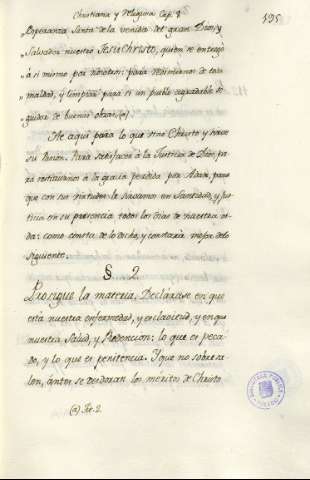 Christiana y Religiosa Cap. 9
195
„Esperanza Santa de la venida del gran Dios, y
„Salvador nuestro Jesu Christo, quien se entregó
„á si mismo por nosotros: para redimirnos de toda
„maldad, y limpiar para si un pueblo agradable se
„guidor de buenas obras. (a)
He aqui para lo que vino Christo y nacio
su Pasion. Para satisfacer á la Justicia de Dios, pa
rá restituirnos á la gracia perdida por Adan, para
que con sus virtudes le sirvamos en Santidad, y Jus
ticia en su presencia todos los dias de nuestra vi
da: como consta de lo dicho, y constará mejor delo
siguiente.
§ 2.
Prosigue la materia. Declárase en que
está nuestra enfermedad, y esclavitud, y en que
nuestra Salud, y Redencion: lo que es peca
do, y lo que es penitencia. Y que no sobresa
len, ántes se desdoran los méritos de Christo
(a) Tit. 2.
BIBLIOTECA PUBLICA
TOLEDO